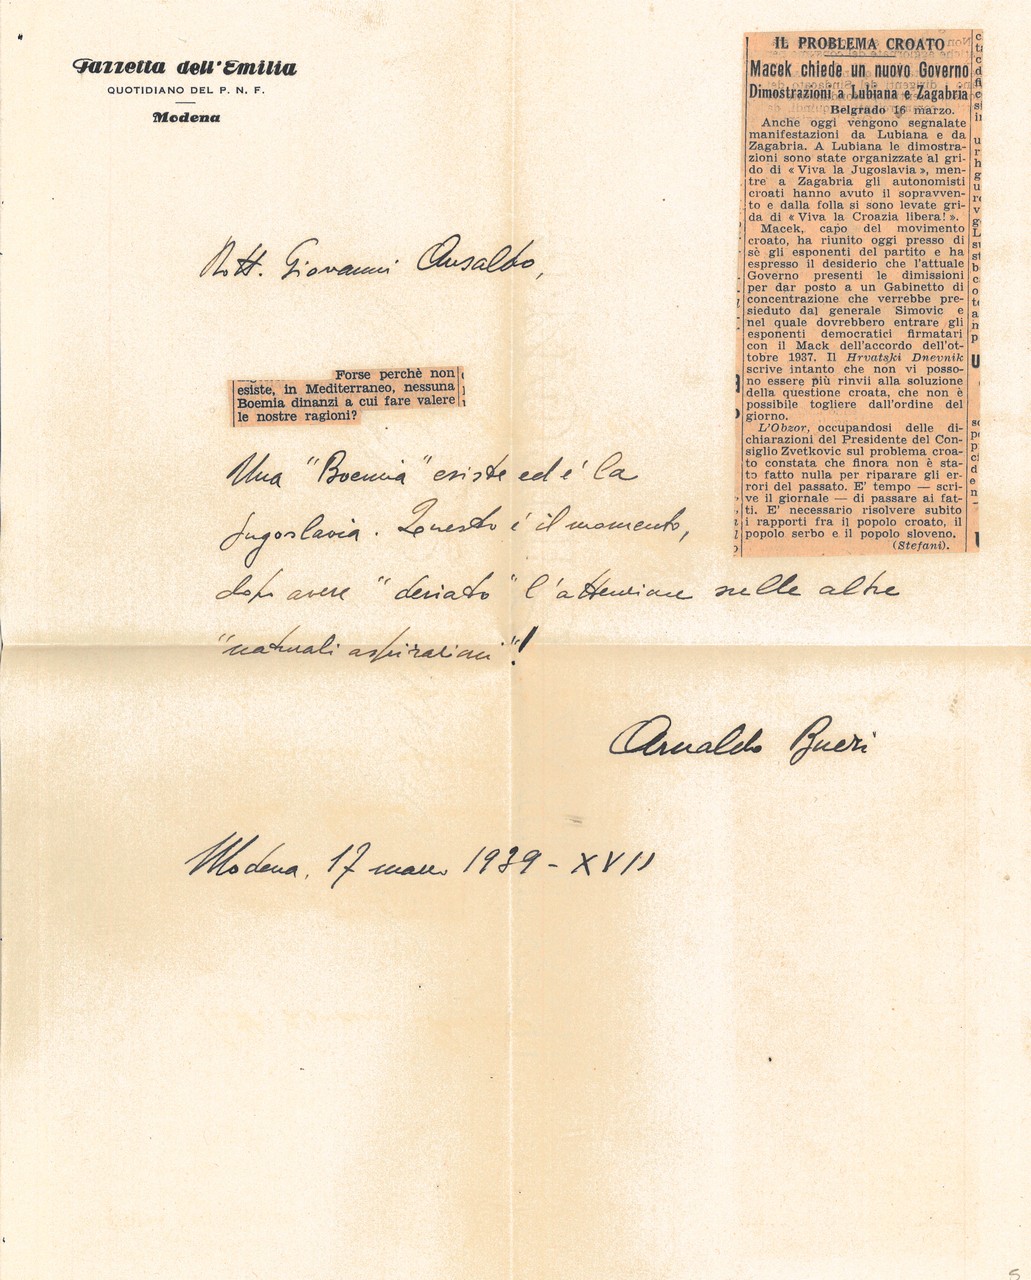 Gazzetta dell'Emilia
QUOTIDIANO DEL P. N. F.
Modena
IL PROBLEMA CROATO
Macek chiede un nuovo Governo
Dimostrazioni a Lubiana e Zagabria
Belgrado 16 marzo.
Anche oggi vengono segnalate
manifestazioni da Lubiana e da
Zagabria. A Lubiana le dimostra-
zioni sono state organizzate al gri-
do di « Viva la Jugoslavia », men-
tre a Zagabria gli autonomisti
croati hanno avuto il sopravven-
to e dalla folla si sono levate gri-
da di « Viva la Croazia libera! ».
Macek, capo del movimento
croato, ha riunito oggi presso di
sè gli esponenti del partito e ha
espresso il desiderio che l'attuale
Governo presenti le dimissioni
per dar posto a un Gabinetto di
concentrazione che verrebbe pre-
sieduto dal generale Simovic e
nel quale dovrebbero entrare gli
esponenti democratici firmatari
con il Mack dell'accordo dell'ot-
tobre 1937. Il Hrvatski Dnevnik
scrive intanto che non vi posso-
no essere più rinvii alla soluzione
della questione croata, che non è
possibile togliere dall'ordine del
giorno.
L'Obzor, occupandosi delle di-
chiarazioni del Presidente del Con-
siglio Zvetkovic sul problema croa-
to constata che finora non è sta-
to fatto nulla per riparare gli er-
rori del passato. E' tempo — scri-
ve il giornale — di passare ai fat-
ti. E' necessario risolvere subito
i rapporti fra il popolo croato, il
popolo serbo e il popolo sloveno.
(Stefani).
Dott. Giovanni Ansaldo,
Forse perchè non
esiste, in Mediterraneo, nessuna
Boemia dinanzi a cui fare valere
le nostre ragioni?
Una "Boemia" esiste ed è la
Jugoslavia. Questo è il momento,
dopo avere "deviato" l'attenzione sulle altre
"naturali aspirazioni"!
Arnaldo
Modena, 17 marzo 1939 - XVII